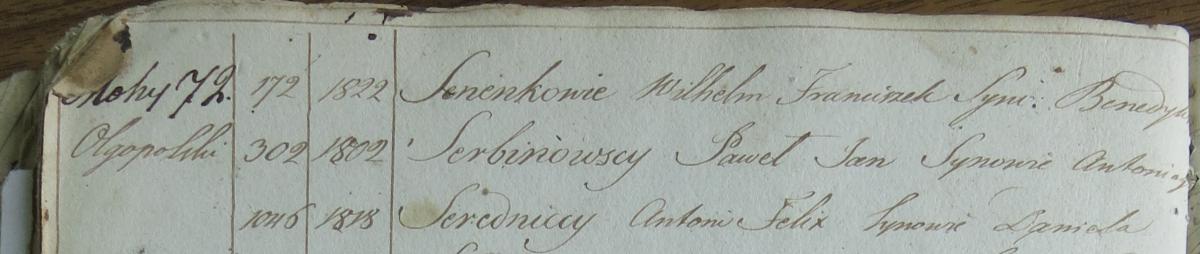 72. 172 1822 Senenkowie Wilhelm Franciszek Syni: Benedyk
Olgopolski 302 1802 Serbinowscy Paweł Jan Synowie Antoniego
1046 1818 Seredniccy Antoni Felix Synowie Daniela